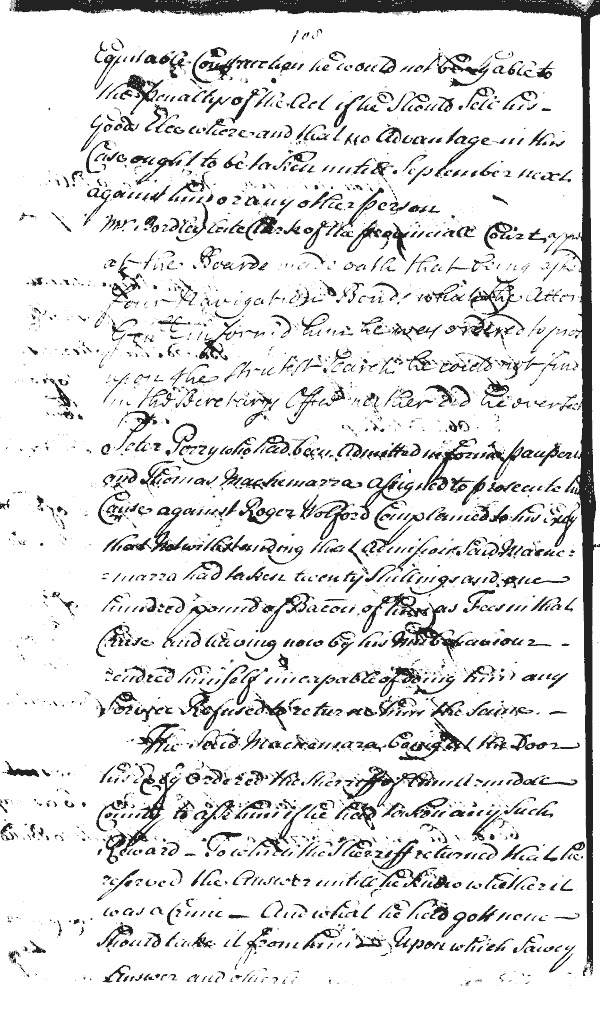 108
Equitable Construction he would not be lyable to
the penaltys of the Act if he Should Sell his
Goods Elsewhere and that no Advantage in this
Case ought to be taken untill September next
against him or any other person
Mr Bordley late Clark of the provinciall Court
at the Boarde made oath that being
four Navigation Bonds the
Gent informd him he was ordered to
upon the Strictest Search he could not find
in the Secretarys Office neither did he ever
Peter Perry who had been Admitted in forma
and Thomas Macnemarra assigned to prosecute his
Cause against Roger Wolford Complained to his Excy
that Notwithstanding that Admission Said Macne=
=marra had taken twenty Shillings and one
hundred pound of Bacon of him as Fees in that
Cause and having now by his Misbehaviour -
rendred himself uncapable of doing him any
Service Refused to return him the Same. -
The Said Macnemara being at the Door
his Excy ordered the Sherriff of Annarundle
County to ask him if he had taken any Such
Reward - To which the Sherriff returned that he
reserved the Answer untill he knew whether it
was a Crime - And what he had gott none -
should take it from him - Upon which Sawcy
Answer and other